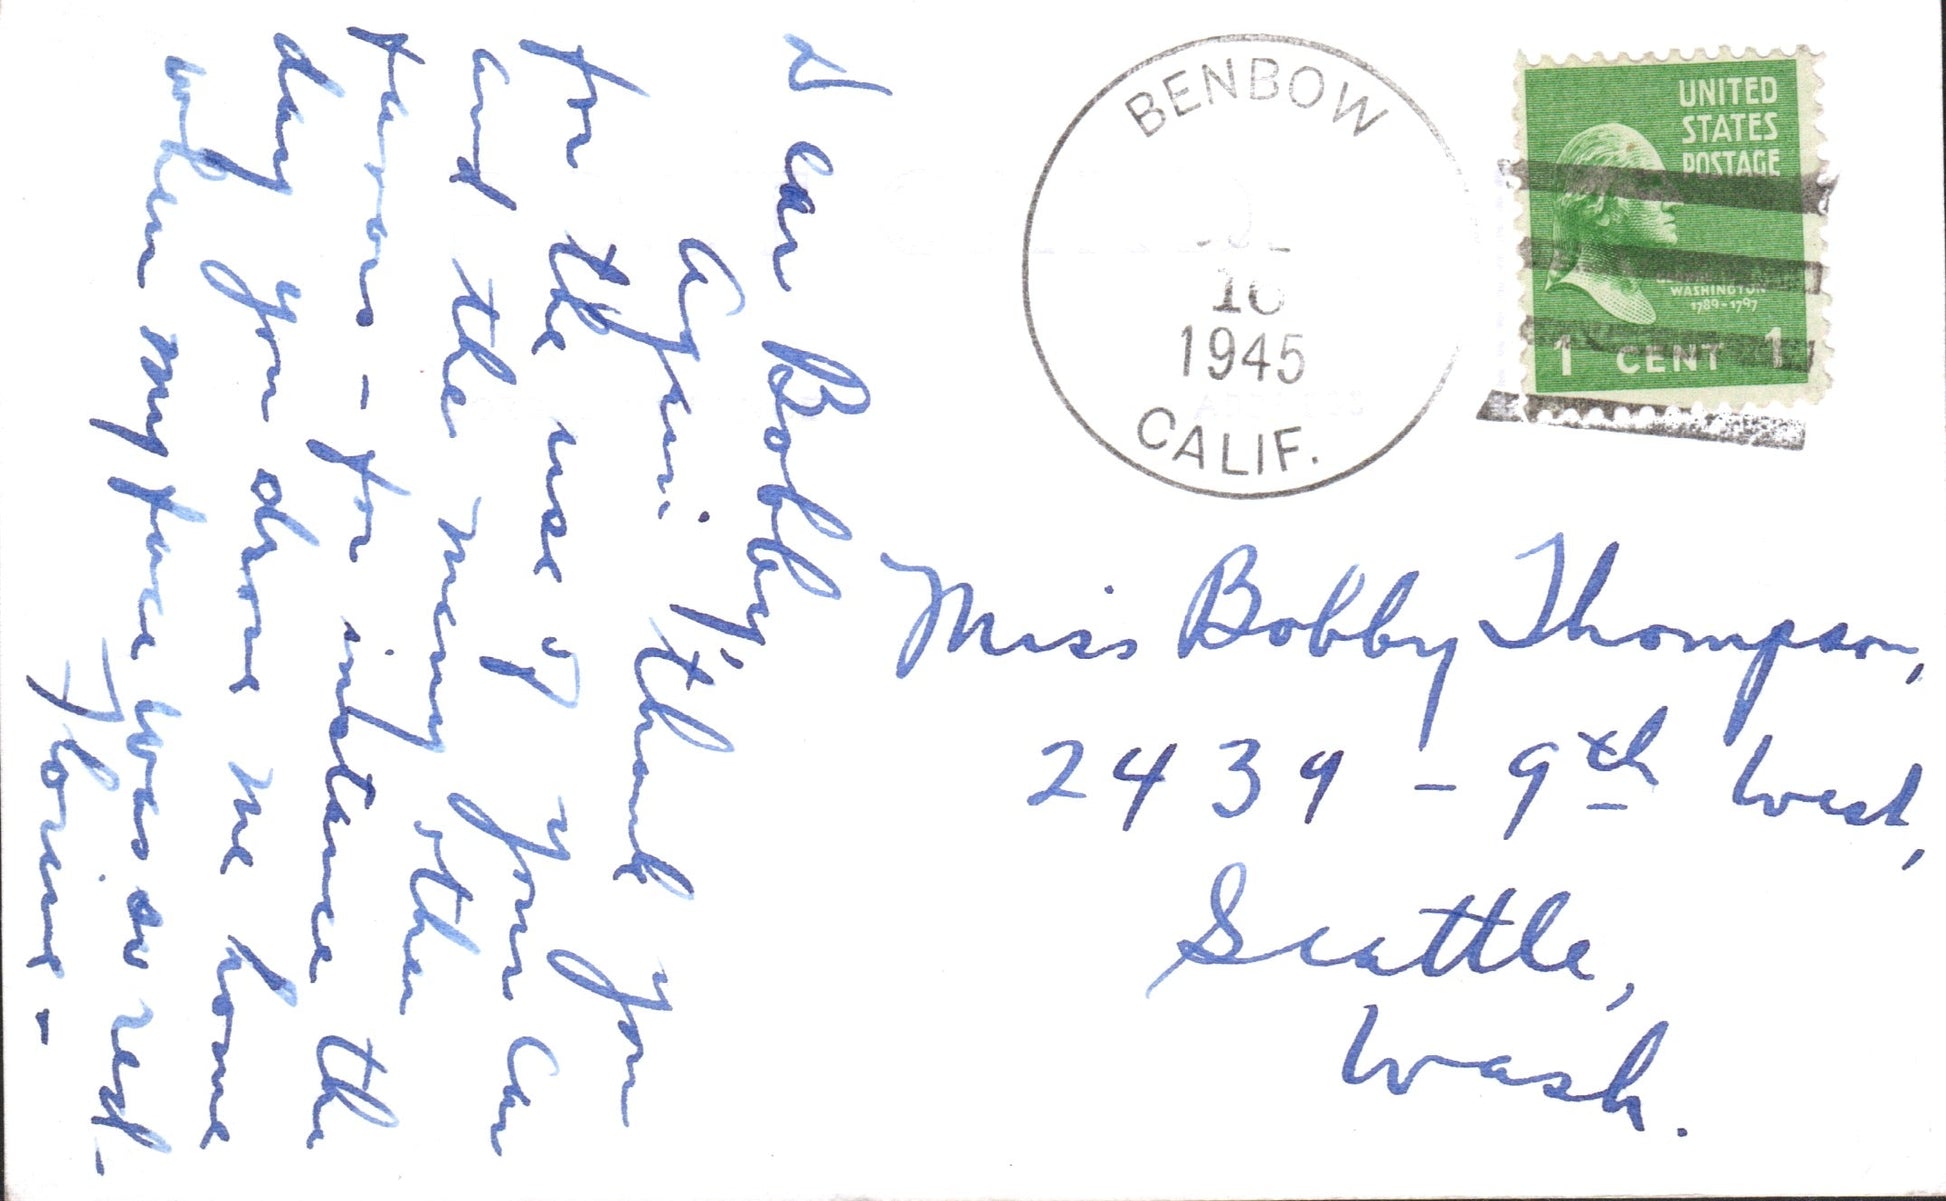 Dear Bobby,
Again thank you
for the use of your car
and the many other
favors - for instance the
day you drove me home
when my face was so red.
Florine -
BENBOW
1945
CALIF.
UNITED
STATES
POSTAGE
WASHINGTON
1789-1797
1 CENT 1
Miss Bobby Thompson,
2439 - 9th West,
Seattle,
Wash.